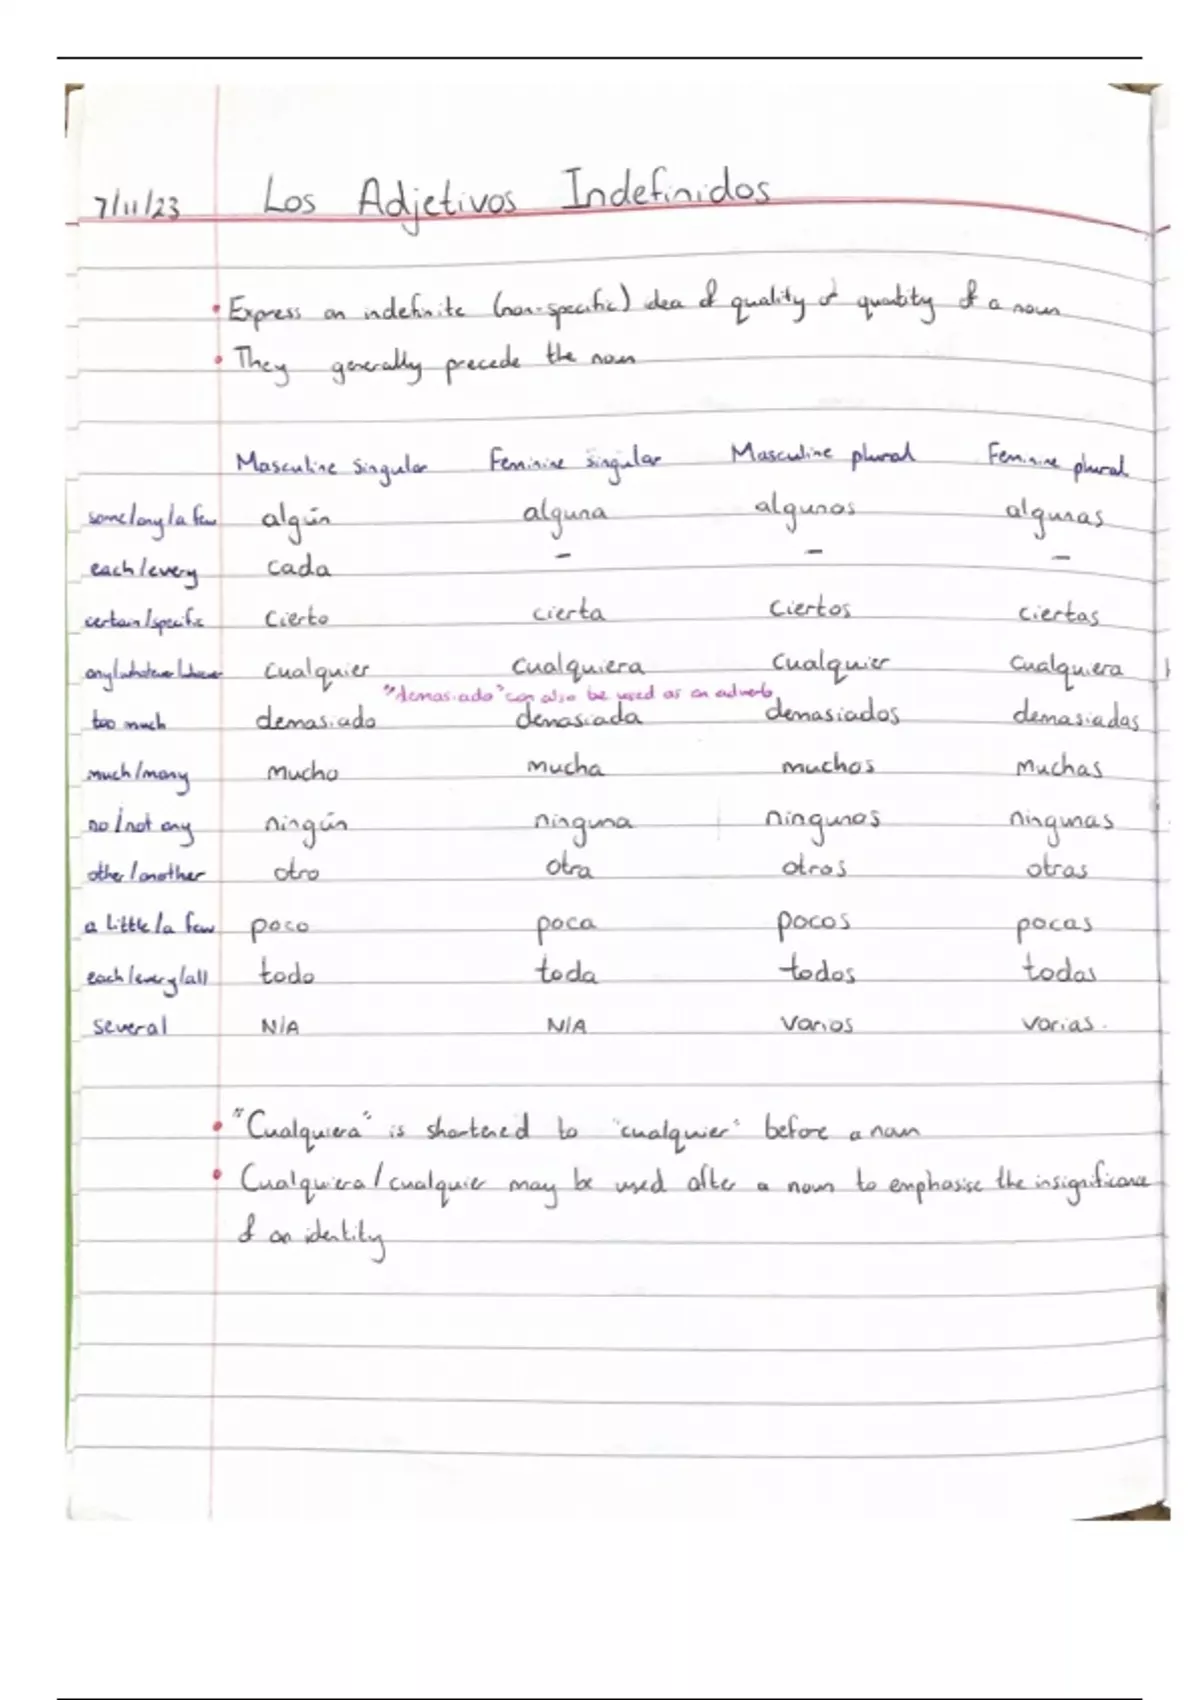 7/11/23 Los Adjetivos Indefinidos
• Express an indefinite (non-specific) idea of quality or quantity of a noun
• They generally precede the noun
Masculine singular Feminine singular Masculine plural Feminine plural
some/any/a few algún alguna algunos algunas
each/every cada - - -
certain/specific cierto cierta ciertos ciertas
any/whatever/ cualquier cualquiera cualquier cualquiera
"demasiado" can also be used as an adverb
too much demasiado demasiada demasiados demasiadas
much/many mucho mucha muchos muchas
no/not any ningún ninguna ningunos ningunas
other/another otro otra otros otras
a little/a few poco poca pocos pocas
each/every/all todo toda todos todas
several N/A N/A varios varias.
• "Cualquiera" is shortened to "cualquier" before a noun
• Cualquiera/cualquier may be used after a noun to emphasise the insignificance
of an identity